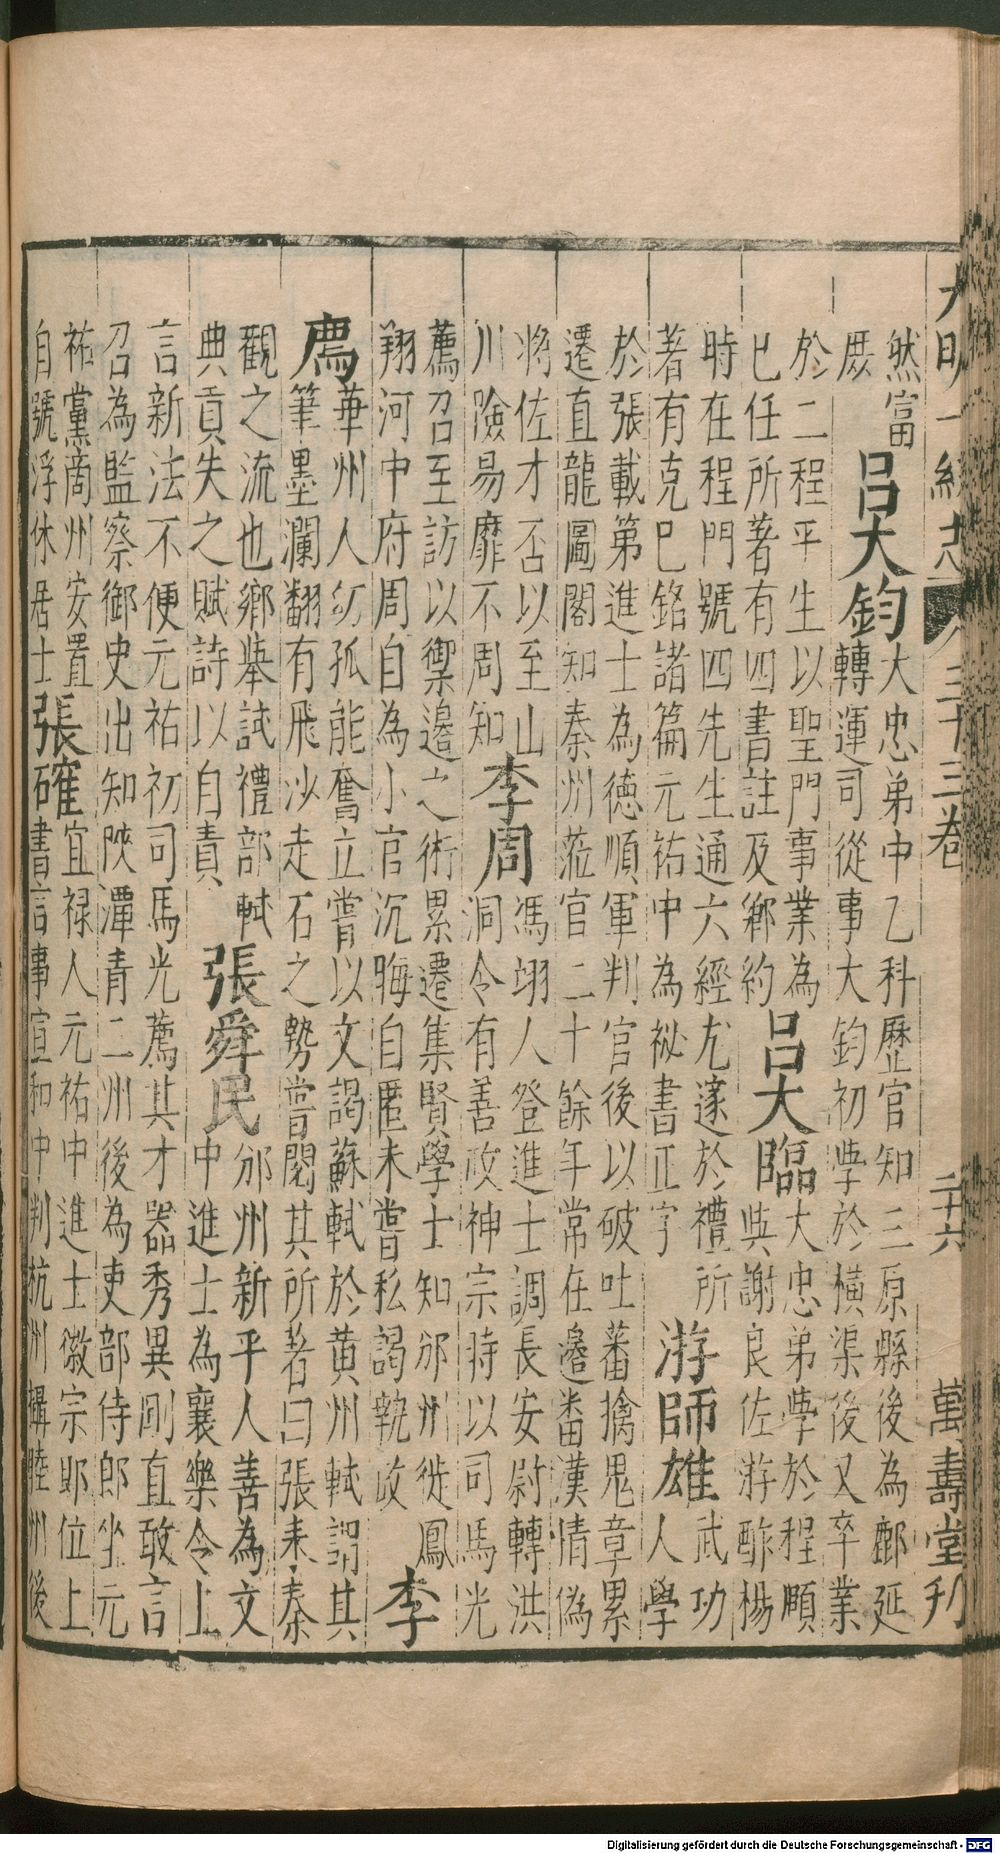 大明一統志 三十三卷 二十六 萬壽堂刊
然富
厥
呂大鈞
大忠弟中乙科歷官知三原縣後為鄜延
轉運司從事大鈞初學於橫渠後又卒業
於二程平生以聖門事業為
已任所著有四書註及鄉約
呂大臨
大忠弟學於程顥
與謝良佐游酢楊
時在程門號四先生通六經尤邃於禮所
著有克巳銘諸篇元祐中為祕書正字
游師雄
武功
人學
於張載第進士為德順軍判官後以破吐蕃擒鬼章累
遷直龍圖閣知秦州蒞官二十餘年常在邊番漢情偽
將佐才否以至山
川險易靡不周知
李周
馮翊人登進士調長安尉轉洪
洞令有善政神宗時以司馬光
薦召至訪以禦邊之術累遷集賢學士知邠州徙鳳
翔河中府周自為小官沉晦自匿未嘗私謁執政
李
廌
華州人幼孤能奮立嘗以文謁蘇軾於黃州軾謂其
筆墨瀾翻有飛沙走石之勢嘗閱其所著曰張耒秦
觀之流也鄉舉試禮部軾
典貢失之賦詩以自責
張舜民
邠州新平人善為文
中進士為襄樂令上
言新法不便元祐初司馬光薦其才器秀異剛直敢言
召為監察御史出知陝潭青二州後為吏部侍郎坐元
祐黨商州安置
自號浮休居士
張確
宜祿人元祐中進士徽宗即位上
書言事宣和中判杭州攝睦州後
Digitalisierung gefördert durch die Deutsche Forschungsgemeinschaft - DFG